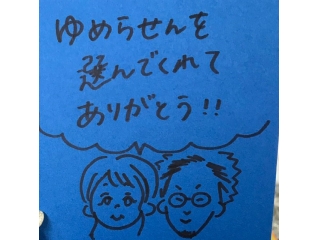 ゆめらせんを
選んでくれて
ありがとう!!